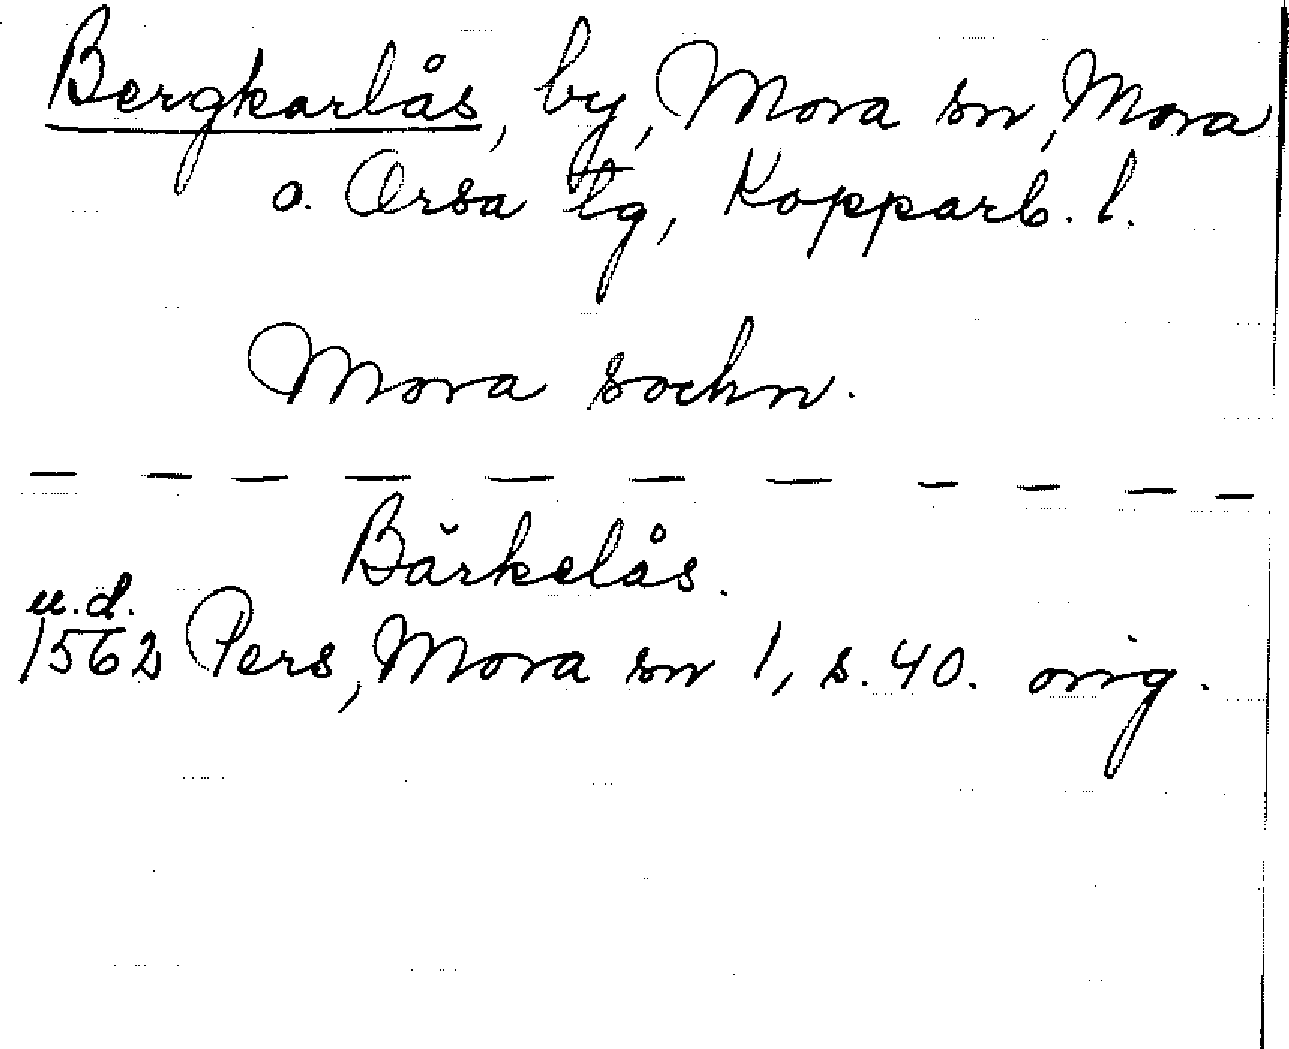 Bergkarlås, by, Mora sn, Mora
o. Orsa tg, Kopparb. l.
Mora sochn.
Bärkelås.
u.d.
1562 Pers, Mora sn 1, s. 40. orig.